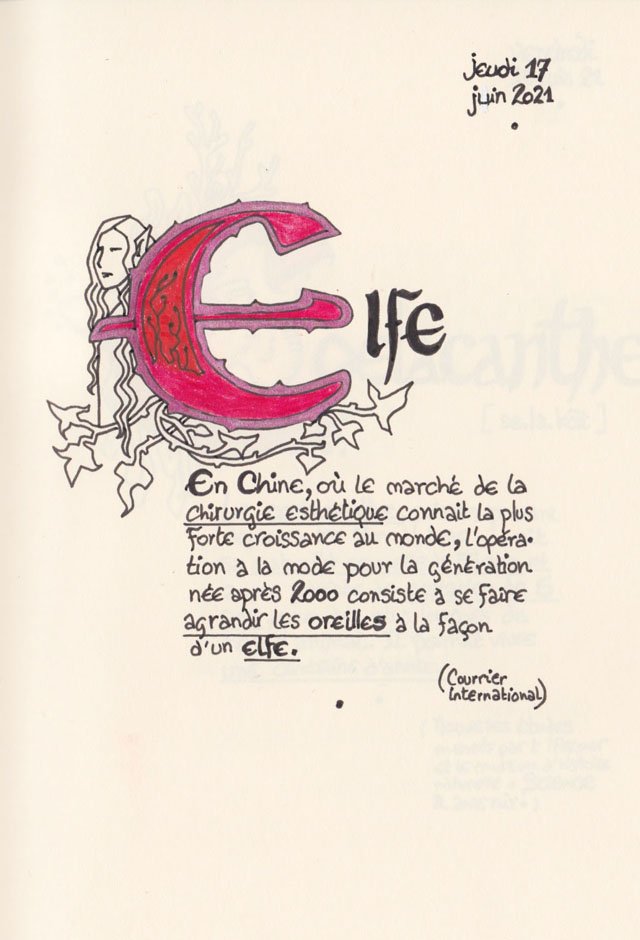 jeudi 17
juin 2021
Elfe
En Chine, où le marché de la
chirurgie esthétique connait la plus
forte croissance au monde, l'opéra-
tion à la mode pour la génération
née après 2000 consiste à se faire
agrandir les oreilles à la façon
d'un elfe.
(Courrier
international)